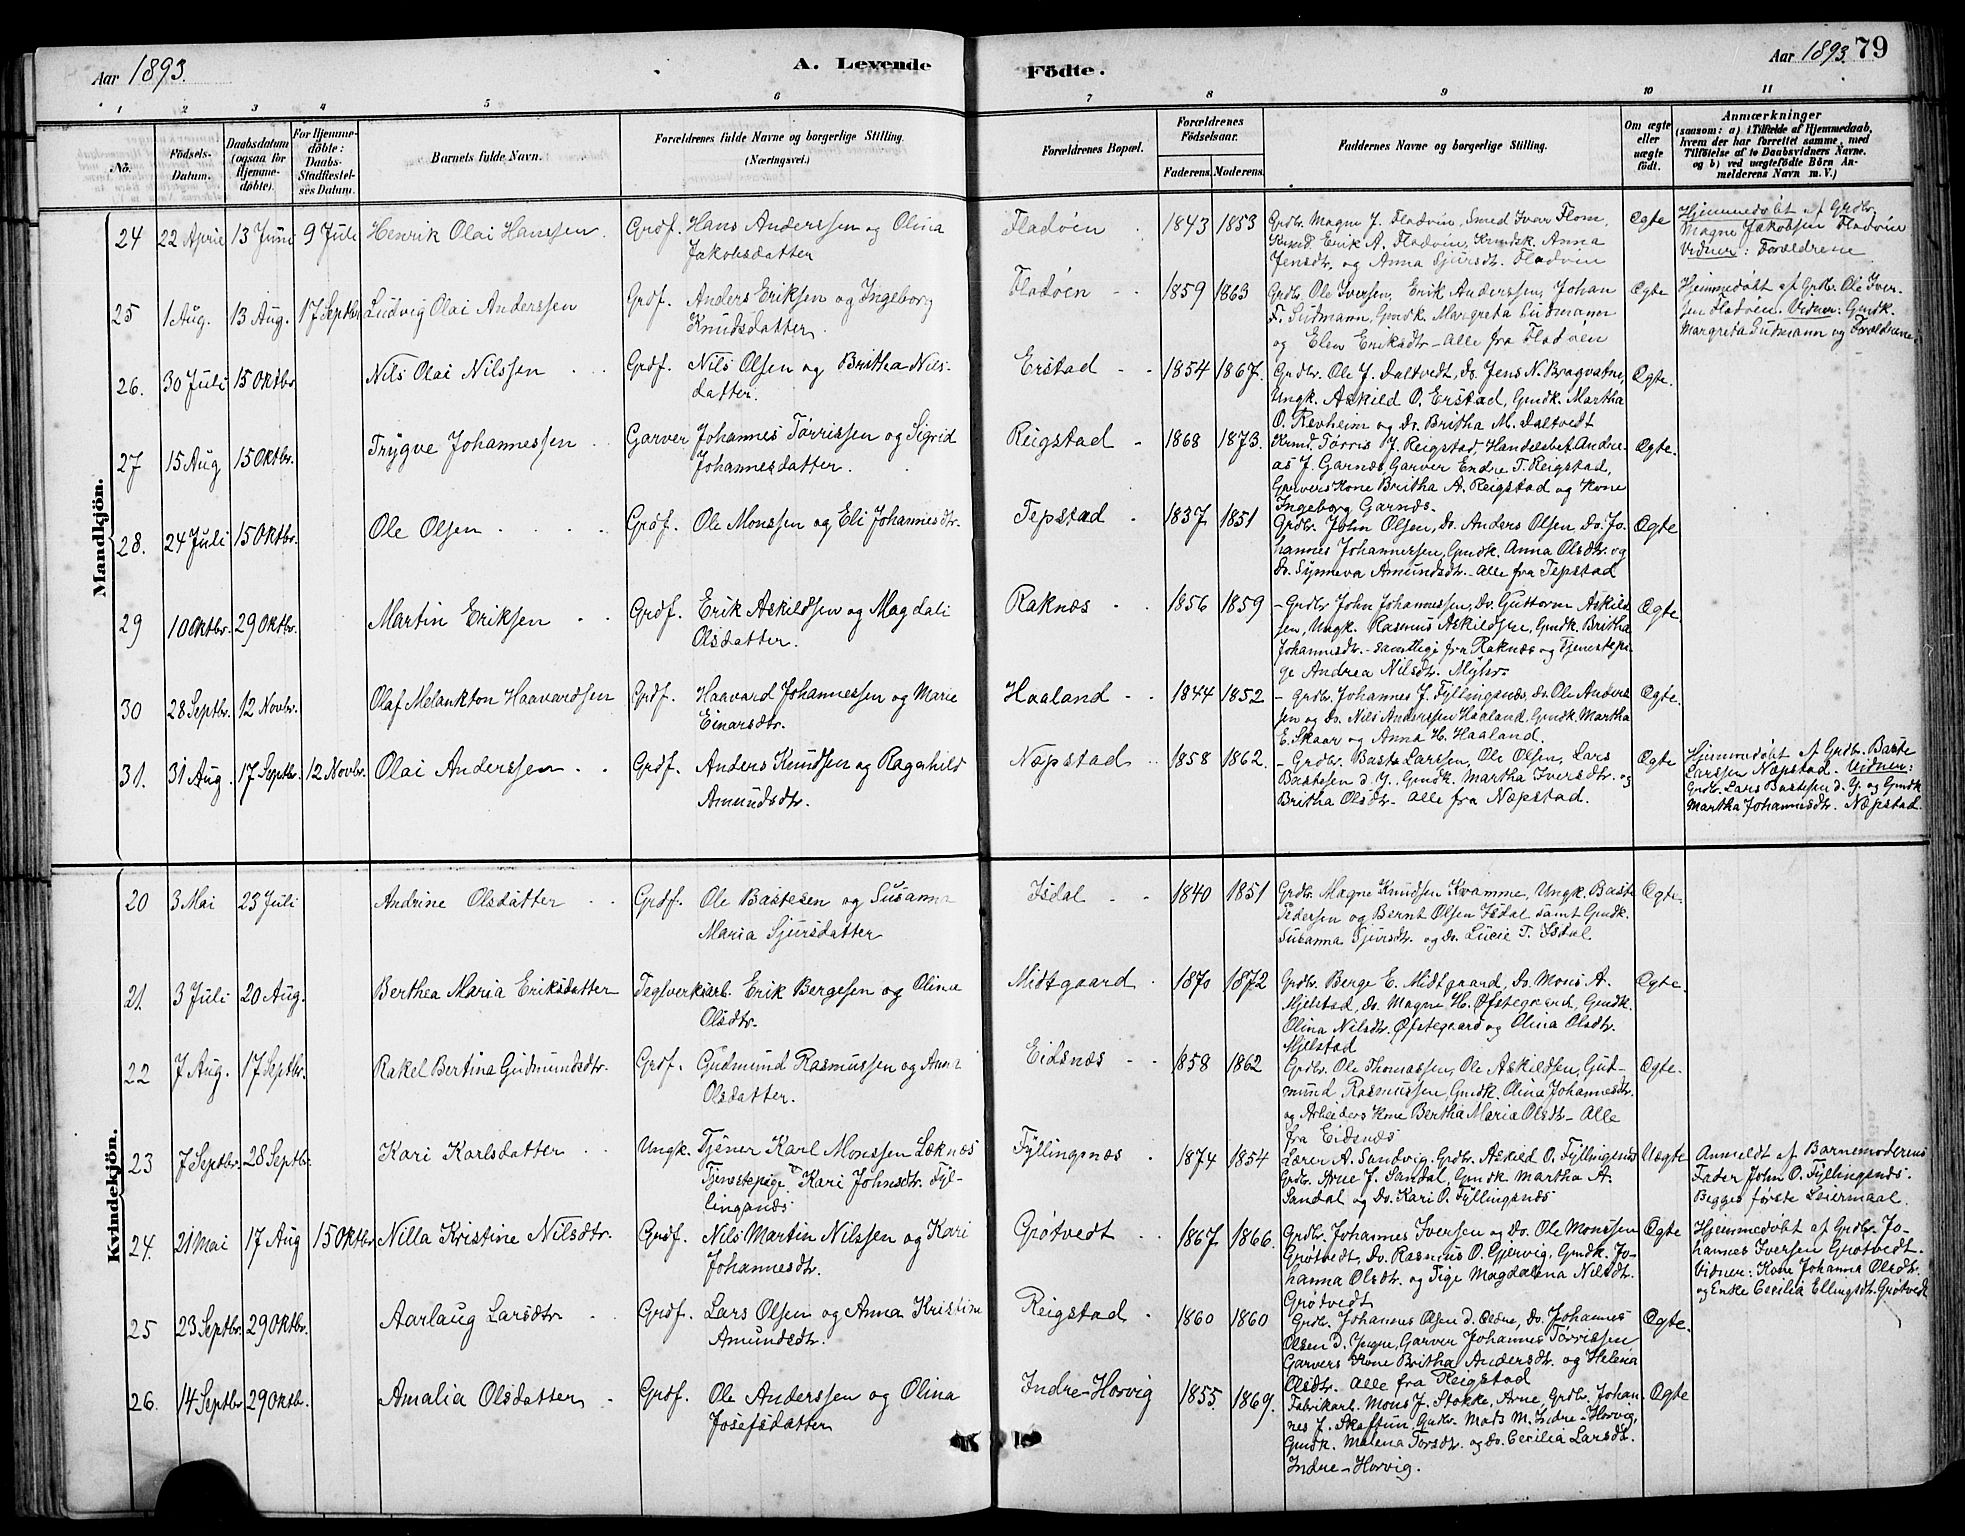 Aar 1893.
A. Levende
Födte.
Aar 1893. 79
1 2 3 4 5 6 7 8 9 10 11
No.
Fødsels-Datum.
Daabsdatum (ogsaa for Hjemme-døbte).
For Hjemme-døbte: Daabs-Stadfæstel-ses Datum.
Barnets fulde Navn.
Forældrenes fulde Navne og borgerlige Stilling. (Næringsvei.)
Forældrenes Bopæl.
Forældrenes Födselsaar.
Faderens. Moderens.
Faddernes Navne og borgerlige Stilling.
Om ægte eller uægte født.
Anmærkninger
(saasom: a) i Tilfælde af Hjemmedaab, hvem der har forrettet samme, med Tilföielse af to Daabsvidners Navne, og b) ved uægtefödte Börn Anmelderens Navn m. V.)
Mandkjön.
24 22 April 13 Juni 9 Juli Henrik Olai Hanssen. Grdf. Hans Anderssen og Olina
Jakobsdatter
Fladöen 1843 1853 Grdbr. Magne J. Fladöen, Smed Iver Flom,
Kmd. Erik A. Fladöen, Kmdsk. Anna
Jensdtr. og Anna Sjursdtr. Fladöen
Ægte Hjemmedøbt af Grdbr.
Magne Jakobsen Fladöen
Vidner: Forældrene
25 1 Aug. 13 Aug. 17 Septbr. Ludvig Olai Anderssen Grdf. Anders Eriksen og Ingeborg
Knudsdatter.
Fladöen 1859 1863 Grdbr. Ole Iversen, Erik Anderssen, Johan
F. Sudmann, Gmdk. Margreta Sudmann
og Elen Eriksdtr. - Alle fra Fladöen
Ægte Hjemmedøbt af Grdbr. Ole Iver-
sen Fladöen. Vidner: Gmdk.
Margreta Sudmann og Forældrene
26. 30 Juli 15 Oktbr. Nils Olai Nilssen Grdf. Nils Olsen og Britha Nils-
datter.
Erstad 1854 1867. Grdbr. Ole J. Daltvedt, Do. Jens N. Bragvatne,
Ungk. Askild O. Erstad, Gmdk. Martha
O. Revheim og Do. Britha M. Daltvedt
Ægte.
27 15 Aug 15 Oktbr. Trygve Johannessen Garver Johannes Tørrissen og Sigrid
Johannesdatter.
Reigstad 1868 1873. Kmd. Tørris J. Reigstad, Handelsbet. Andre-
as J. Garnæs, Garver Endre T. Reigstad,
Garvers Kone Britha A. Reigstad og Kone
Ingeborg Garnæs.
Ægte.
28. 24 Juli 15 Oktbr. Ole Olsen Grdf. Ole Monssen og Eli Johannesdtr.
Tepstad 1837 1851 Grdbr. John Olsen, Do. Anders Olsen, Do. Jo-
hannes Johannessen, Gmdk. Anna Olsdtr. og
Do. Synneva Amundsdtr. - Alle fra Tepstad
Ægte
29 10 Oktbr. 29 Oktbr. Martin Eriksen Grdf. Erik Askildsen og Magdali
Olsdatter.
Raknæs 1856 1859 - Grdbr John Johannessen, Do. Guttorm Askild-
sen, Ungk. Rasmus Askildsen, Gmdk. Britha
Johannesdtr. - samtlige fra Raknæs og Tjenestepi-
ge Andrea Nilsdtr. Myhr.
Ægte.
30 28 Septbr. 12 Novbr. Olaf Melankton Haavardsen Grdf. Haavard Johannessen og Marie
Einarsdtr.
Haaland 1844 1852 - Grdbr. Johannes J. Fyllingsnæs, Do. Ole Anders-
sen og Do. Nils Anderssen Haaland, Gmdk. Martha
E. Skaar og Anna H. Haaland.
Ægte.
31. 31 Aug. 17 Septbr. 12 Novbr. Olai Anderssen Grdf. Anders Knudsen og Ragnhild
Amundsdtr.
Næpstad 1858 1862. - Grdbr. Baste Larssen, Ole Olsen, Lars
Bastesen d. Y., Gmdk. Martha Iversdtr. og
Britha Olsdtr. - Alle fra Næpstad.
Ægte Hjemmedøbt af Grdbr. Baste
Larssen Næpstad. Vidner:
Grdbr. Lars Bastesen d. Y. og Gmdk.
Martha Johannesdtr. Næpstad.
Kvindekjön.
20 3 Mai 23 Juli Andrine Olsdatter Grdf. Ole Bastesen og Susanna
Maria Sjursdatter
Isdal 1840 1851 Grdbr. Magne Knudsen Kvamme, Ungk. Baste
Pedersen og Bernt Olsen Isdal samt Gmdk.
Susanna Sjursdtr. og Do. Lucie T. Isdal.
Ægte.
21. 3 Juli 20 Aug. Berthea Maria Eriksdatter Teglverksarb. Erik Bergesen og Olina
Olsdtr.
Midtgaard 1870 1872 Grdbr. Berge E. Midtgaard, Do. Mons A.
Mjelstad, Do. Magne H. Øfstegaard, Gmdk.
Olina Nilsdtr. Øfstegaard og Olina Olsdtr.
Mjelstad
Ægte.
22 7 Aug. 17 Septbr. Rakel Bertina Gudmundsdtr. Grdf. Gudmund Rasmussen og Anna
Olsdatter.
Eidsnæs 1858 1862 Grdbr. Ole Thomassen, Ole Askildsen, Gud-
mund Rasmussen, Gmdk. Olina Johannesdtr.
og Arbeiders Kone Bertha Maria Olsdtr - Alle
fra Eidsnæs
Ægte.
23 7 Septbr. 28 Septbr. Kari Karlsdatter Ungk. Tjener Karl Monssen Leknæs
Tjenestepige Kari Johnsdtr. Fyl-
lingsnæs
Fyllingsnæs 1874 1854 Lærer A. Sandvig, Grdbr. Askild O. Fyllingsnæs
Grdbr. Arne J. Sandal, Gmdk. Martha A.
Sandal og Do. Kari O. Fyllingsnæs
Uægte Anmeldt af Barnemoderens
Fader John O. Fyllingsnæs.
Begges første Leiermaal.
24. 21 Mai 17 Aug 15 Oktbr Nilla Kristine Nilsdtr. Grdf. Nils Martin Nilssen og Kari
Johannesdtr.
Grøtvedt 1867. 1866. Grdbr. Johannes Iversen og Do. Ole Monssen
Grøtvedt, Do. Rasmus O. Gjervig, Gmdk. Jo-
hanna Olsdtr. og Pige Magdalena Nilsdtr.
Grøtvedt
Ægte Hjemmedøbt af Grdbr. Jo-
hannes Iversen Grøtvedt.
Vidner: Kone Johanna Olsdtr.
og Enke Cecilia Ellingsdtr. Grøtvedt
25 23 Septbr. 29 Oktbr. Aarlaug Larsdtr Grdf. Lars Olsen og Anna Kristine
Amundsdtr.
Reigstad 1860 1860 Grdbr. Johannes Olsen d. Ældre, Do. Johannes
Olsen d. Yngre, Garver Johannes Tørrissen
Garvers Kone Britha Andersdtr. og Helena
Olsdtr. Alle fra Reigstad
Ægte.
26. 14 Septbr. 29 Oktbr. Amalia Olsdatter Grdf. Ole Anderssen og Olina
Josefsdatter
Indre-Horvig 1855. 1869. Fabrikarb. Mons J. Stokke, Arne, Grdbr. Johan-
nes J. Skaftun, Grdbr. Mads M. Indre-Horvig,
Gmdk. Malena Torsdtr. og Do. Cecilia Larsdtr.
Indre-Horvig.
Ægte